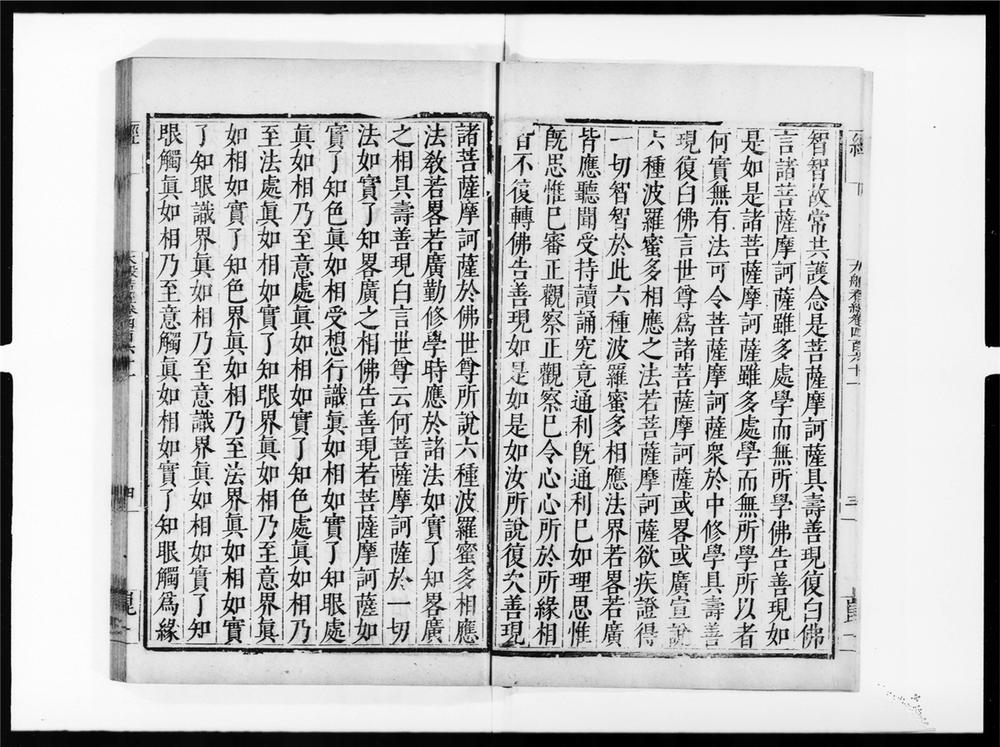 智智故常共護念是菩薩摩訶薩具壽善現復白佛
言諸菩薩摩訶薩雖多處學而無所學佛告善現如
是如是諸菩薩摩訶薩雖多處學而無所學所以者
何實無有法可令菩薩摩訶薩衆於中修學具壽善
現復白佛言世尊爲諸菩薩摩訶薩或畧或廣宣說
六種波羅蜜多相應之法若菩薩摩訶薩欲疾證得
一切智智於此六種波羅蜜多相應法界若畧若廣
皆應聽聞受持讀誦究竟通利旣通利已如理思惟
旣思惟已審正觀察正觀察已令心心所於所緣相
皆不復轉佛告善現如是如是如汝所說復次善現
諸菩薩摩訶薩於佛世尊所說六種波羅蜜多相應
法敎若畧若廣勤修學時應於諸法如實了知畧廣
之相具壽善現白言世尊云何菩薩摩訶薩於一切
法如實了知畧廣之相佛告善現若菩薩摩訶薩如
實了知色眞如相受想行識眞如相如實了知眼處
眞如相乃至意處眞如相如實了知色處眞如相乃
至法處眞如相如實了知眼界眞如相乃至意界眞
如相如實了知色界眞如相乃至法界眞如相如實
了知眼識界眞如相乃至意識界眞如相如實了知
眼觸眞如相乃至意觸眞如相如實了知眼觸爲緣